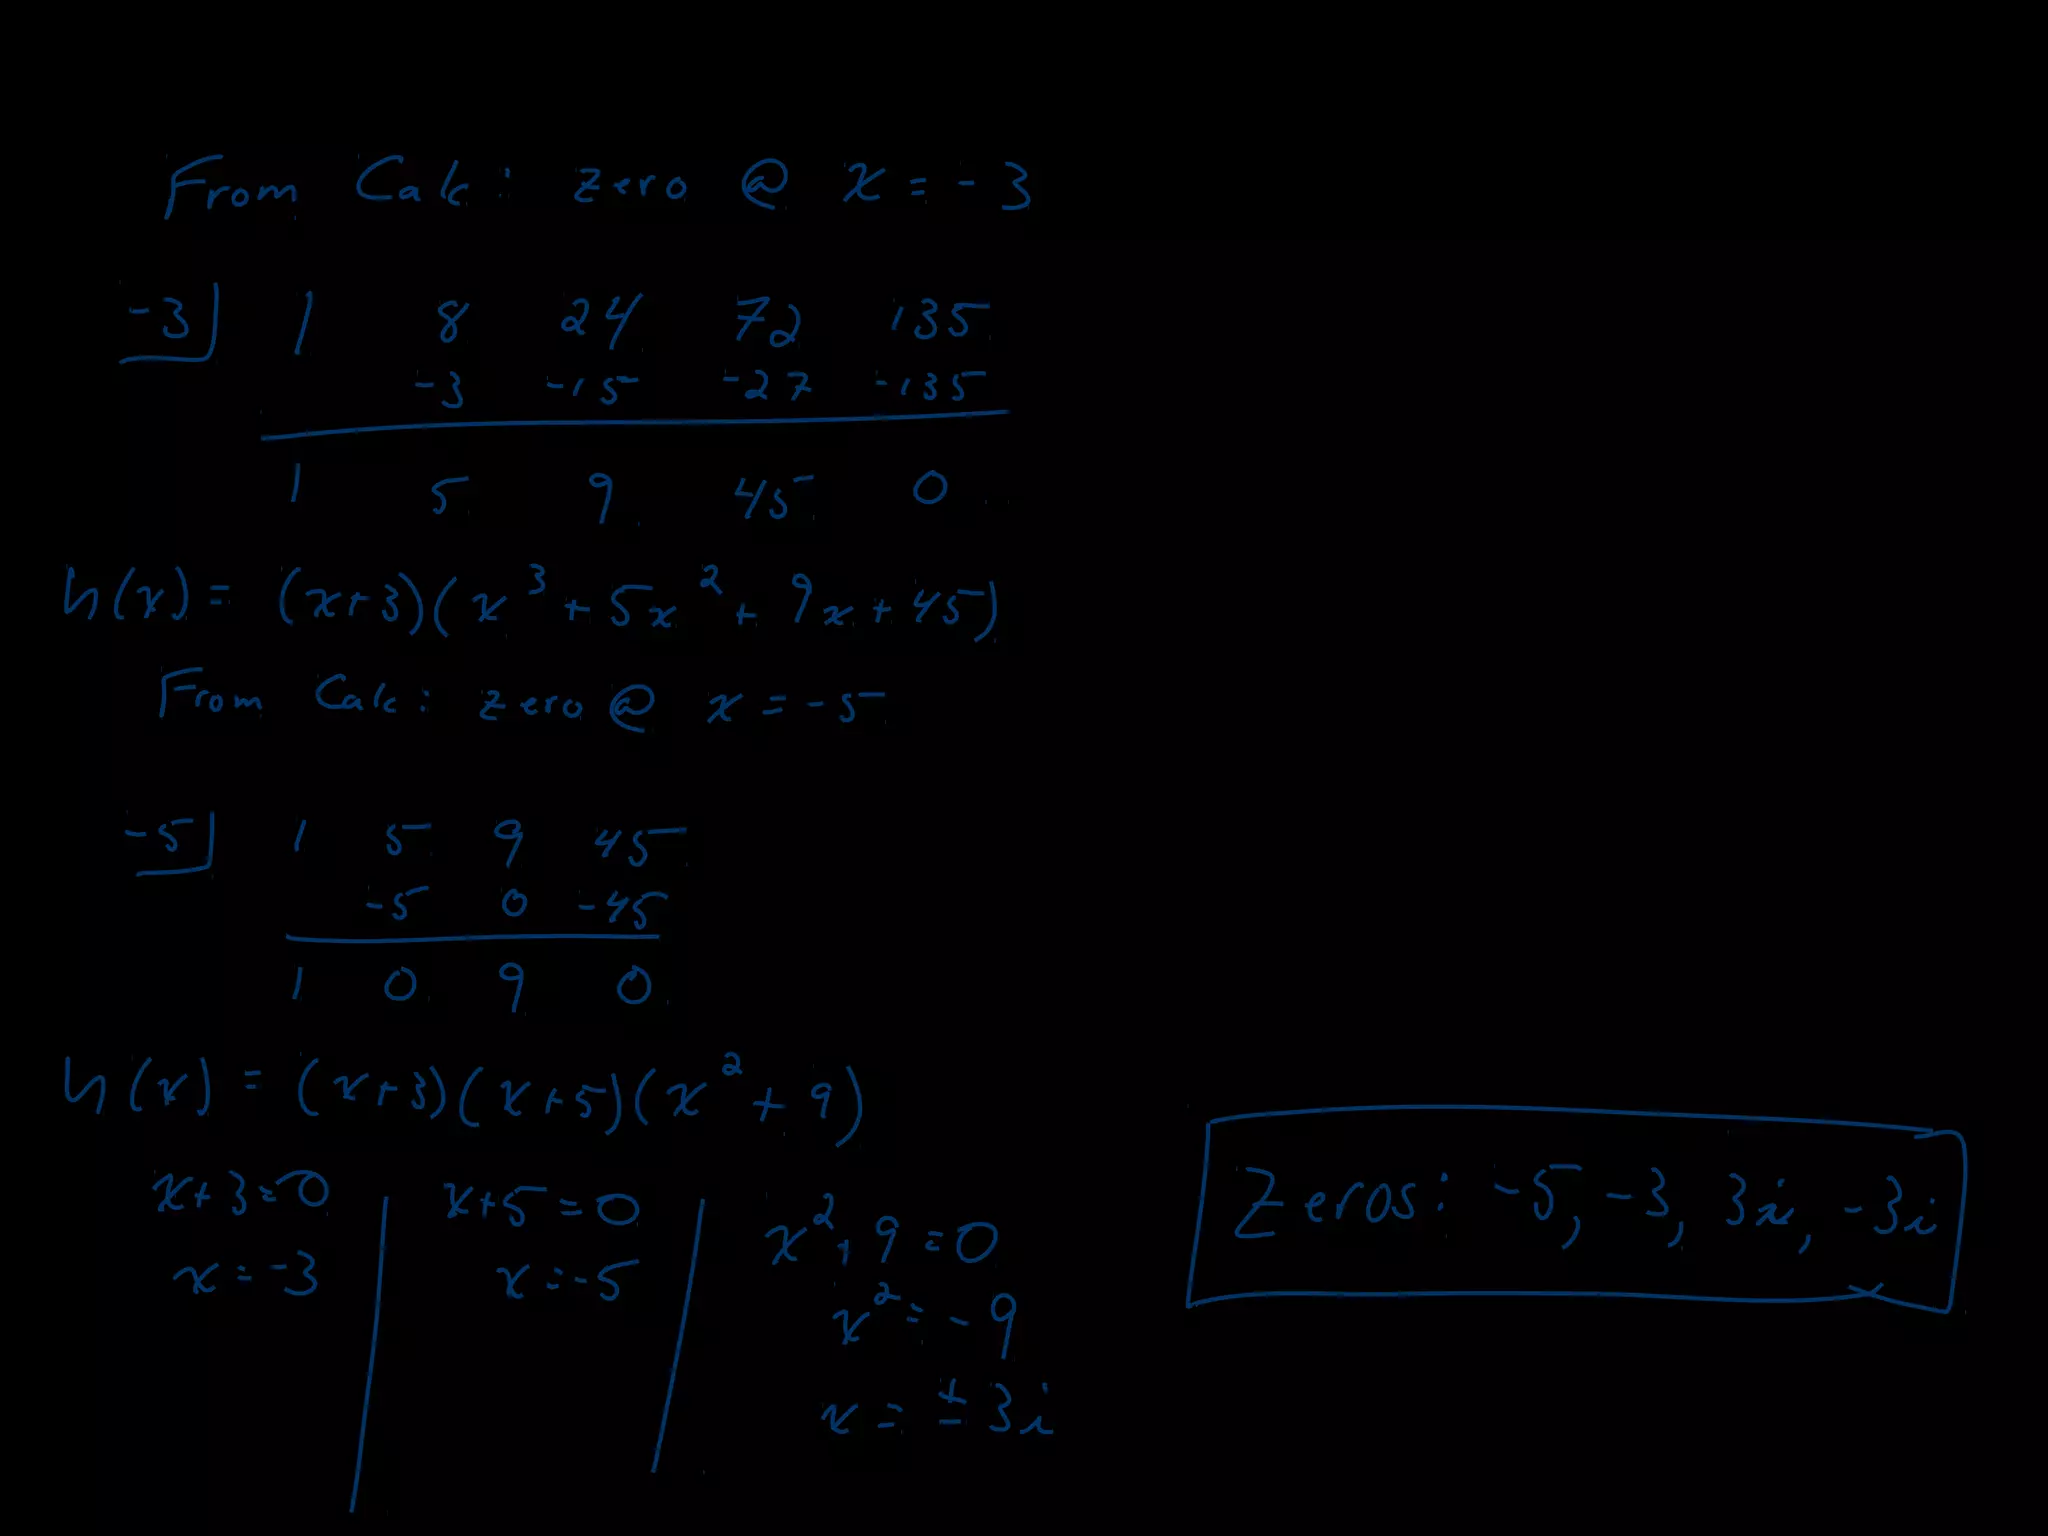 From Calc: zero @ x = -3
-3 1 8 24 72 135
-3 -15 -27 -135
1 5 9 45 0
h(x) = (x+3)(x³ + 5x² + 9x + 45)
From Calc: zero @ x = -5
-5 1 5 9 45
-5 0 -45
1 0 9 0
h(x) = (x+3)(x+5)(x² + 9)
x+3=0 x+5=0 x²+9=0
x=-3 x=-5 x²=-9
x = ±3i
Zeros: -5, -3, 3i, -3i